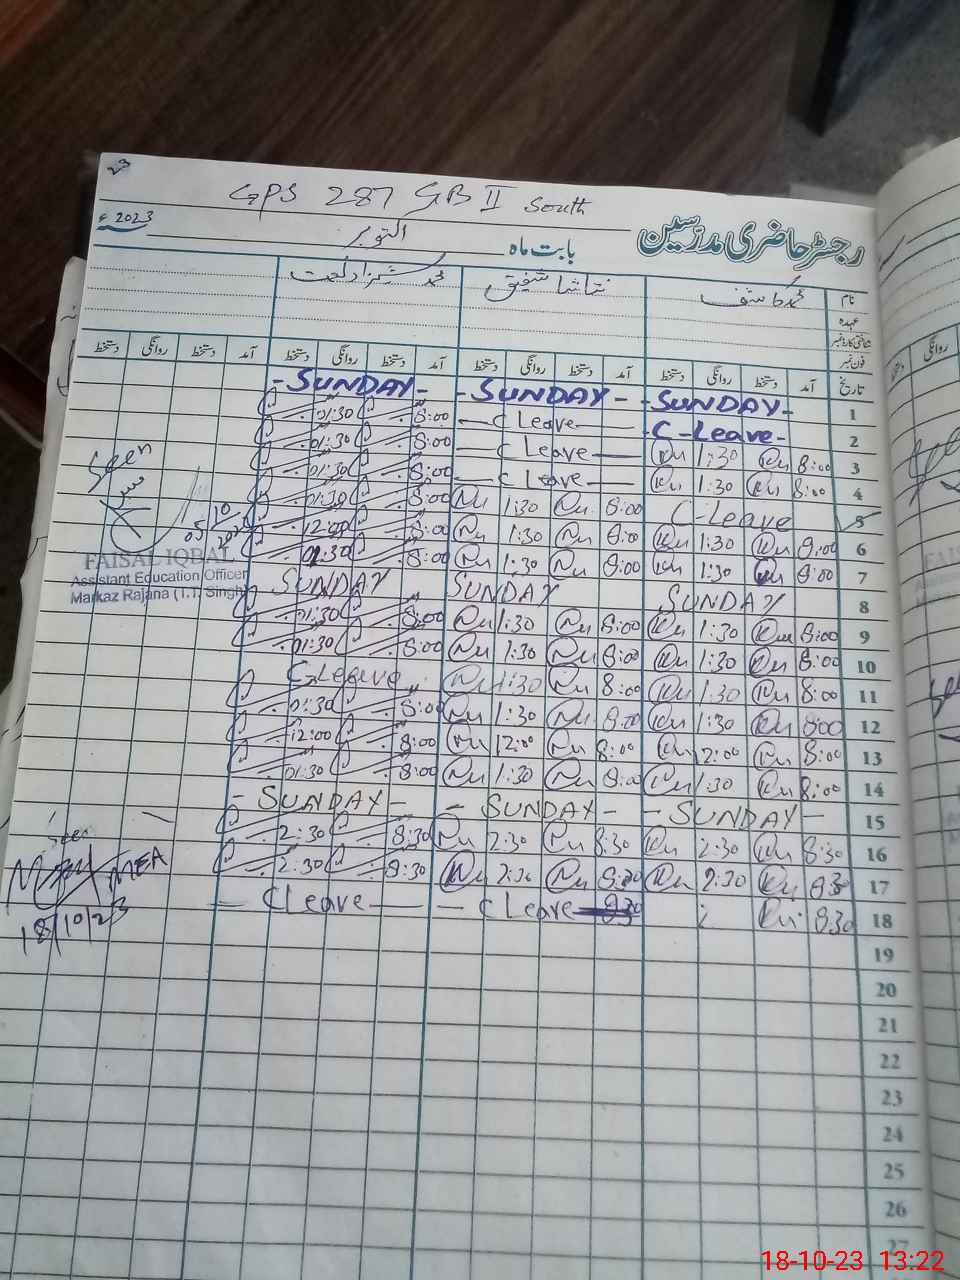 23
GPS 287 GB II South
2023 ء
رجسٹر حاضری مدرسین
بابت ماہ اکتوبر
نام محمد کاشف نتاشا شفیق محمد شہزاد
عہدہ
شناختی کارڈ نمبر
فون نمبر
تاریخ آمد دستخط روانگی دستخط آمد دستخط روانگی دستخط آمد دستخط روانگی دستخط آمد دستخط روانگی دستخط
- SUNDAY - - SUNDAY - - SUNDAY - 1
01:30 8:00 C Leave - C - Leave - 2
01:30 8:00 C Leave 1:30 8:00 3
01:30 8:00 C Leave 1:30 8:00 4
01:30 8:00 1:30 8:00 C - Leave 5
12:00 8:00 1:30 8:00 1:30 8:00 6
01:30 8:00 1:30 8:00 1:30 8:00 7
SUNDAY SUNDAY SUNDAY 8
01:30 8:00 1:30 8:00 1:30 8:00 9
01:30 8:00 1:30 8:00 1:30 8:00 10
C Leave 1:30 8:00 1:30 8:00 11
01:30 8:00 1:30 8:00 1:30 8:00 12
12:00 8:00 12:00 8:00 12:00 8:00 13
01:30 8:00 1:30 8:00 1:30 8:00 14
- SUNDAY - - SUNDAY - - SUNDAY - 15
2:30 8:30 2:30 8:30 2:30 8:30 16
2:30 8:30 2:30 8:30 2:30 8:30 17
C Leave C Leave 8:30 8:30 18
19
20
21
22
23
24
25
26
27
Seen
05/10/2023
FAISAL IQBAL
Assistant Education Officer
Markaz Rajana (T.T. Singh)
Seen
MEA
18/10/23
18-10-23 13:22